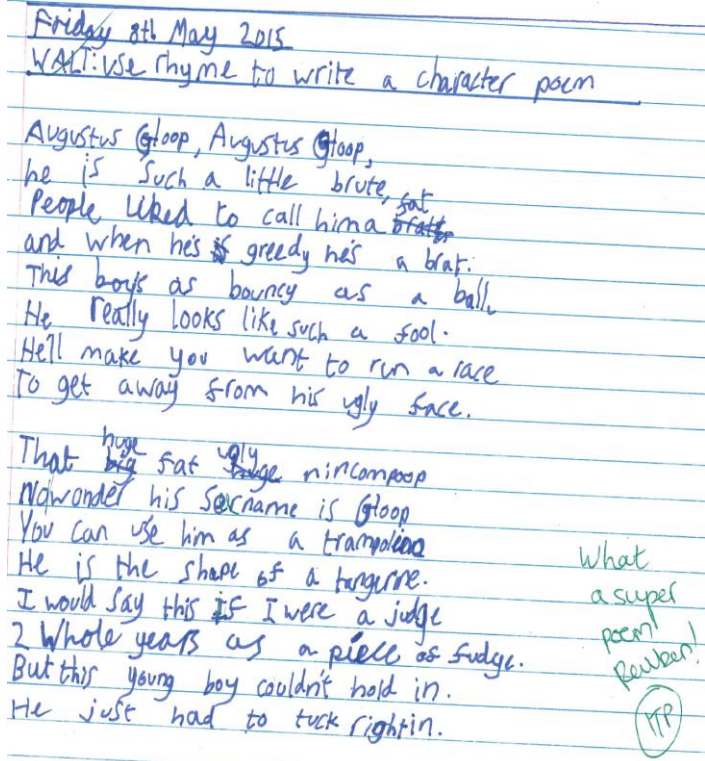 Friday 8th May 2015
WALT: Use rhyme to write a character poem
Augustus Gloop, Augustus Gloop,
he is such a little brute,
People liked to call him a fat
and when he's greedy he's a brat.
This boy's as bouncy as a ball,
He really looks like such a fool.
He'll make you want to run a race
To get away from his ugly face.
That huge fat ugly nincompoop
Nowonder his Surname is Gloop
You can use him as a trampoline
He is the shape of a tangerine.
I would say this if I were a judge
2 Whole years as a piece of fudge.
But this young boy couldn't hold in.
He just had to tuck rightin.
What
a super
poem
Reuben!